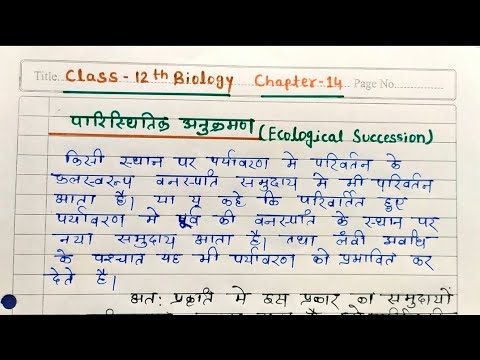 Title. Class - 12th Biology Chapter-14 Page No.
पारिस्थितिक अनुक्रमण (Ecological Succession)
किसी स्थान पर पर्यावरण मे परिवर्तन के
फलस्वरूप वनस्पति समुदाय मे भी परिवर्तन
आता है। या यू कहे कि परिवर्तित हुए
पर्यावरण मे पूर्व की वनस्पति के स्थान पर
नया समुदाय आता है। तथा लंबी अवधि
के पश्चात यह भी पर्यावरण को प्रभावित कर
देते है।
अतः प्रकृति मे इस प्रकार का समुदायों